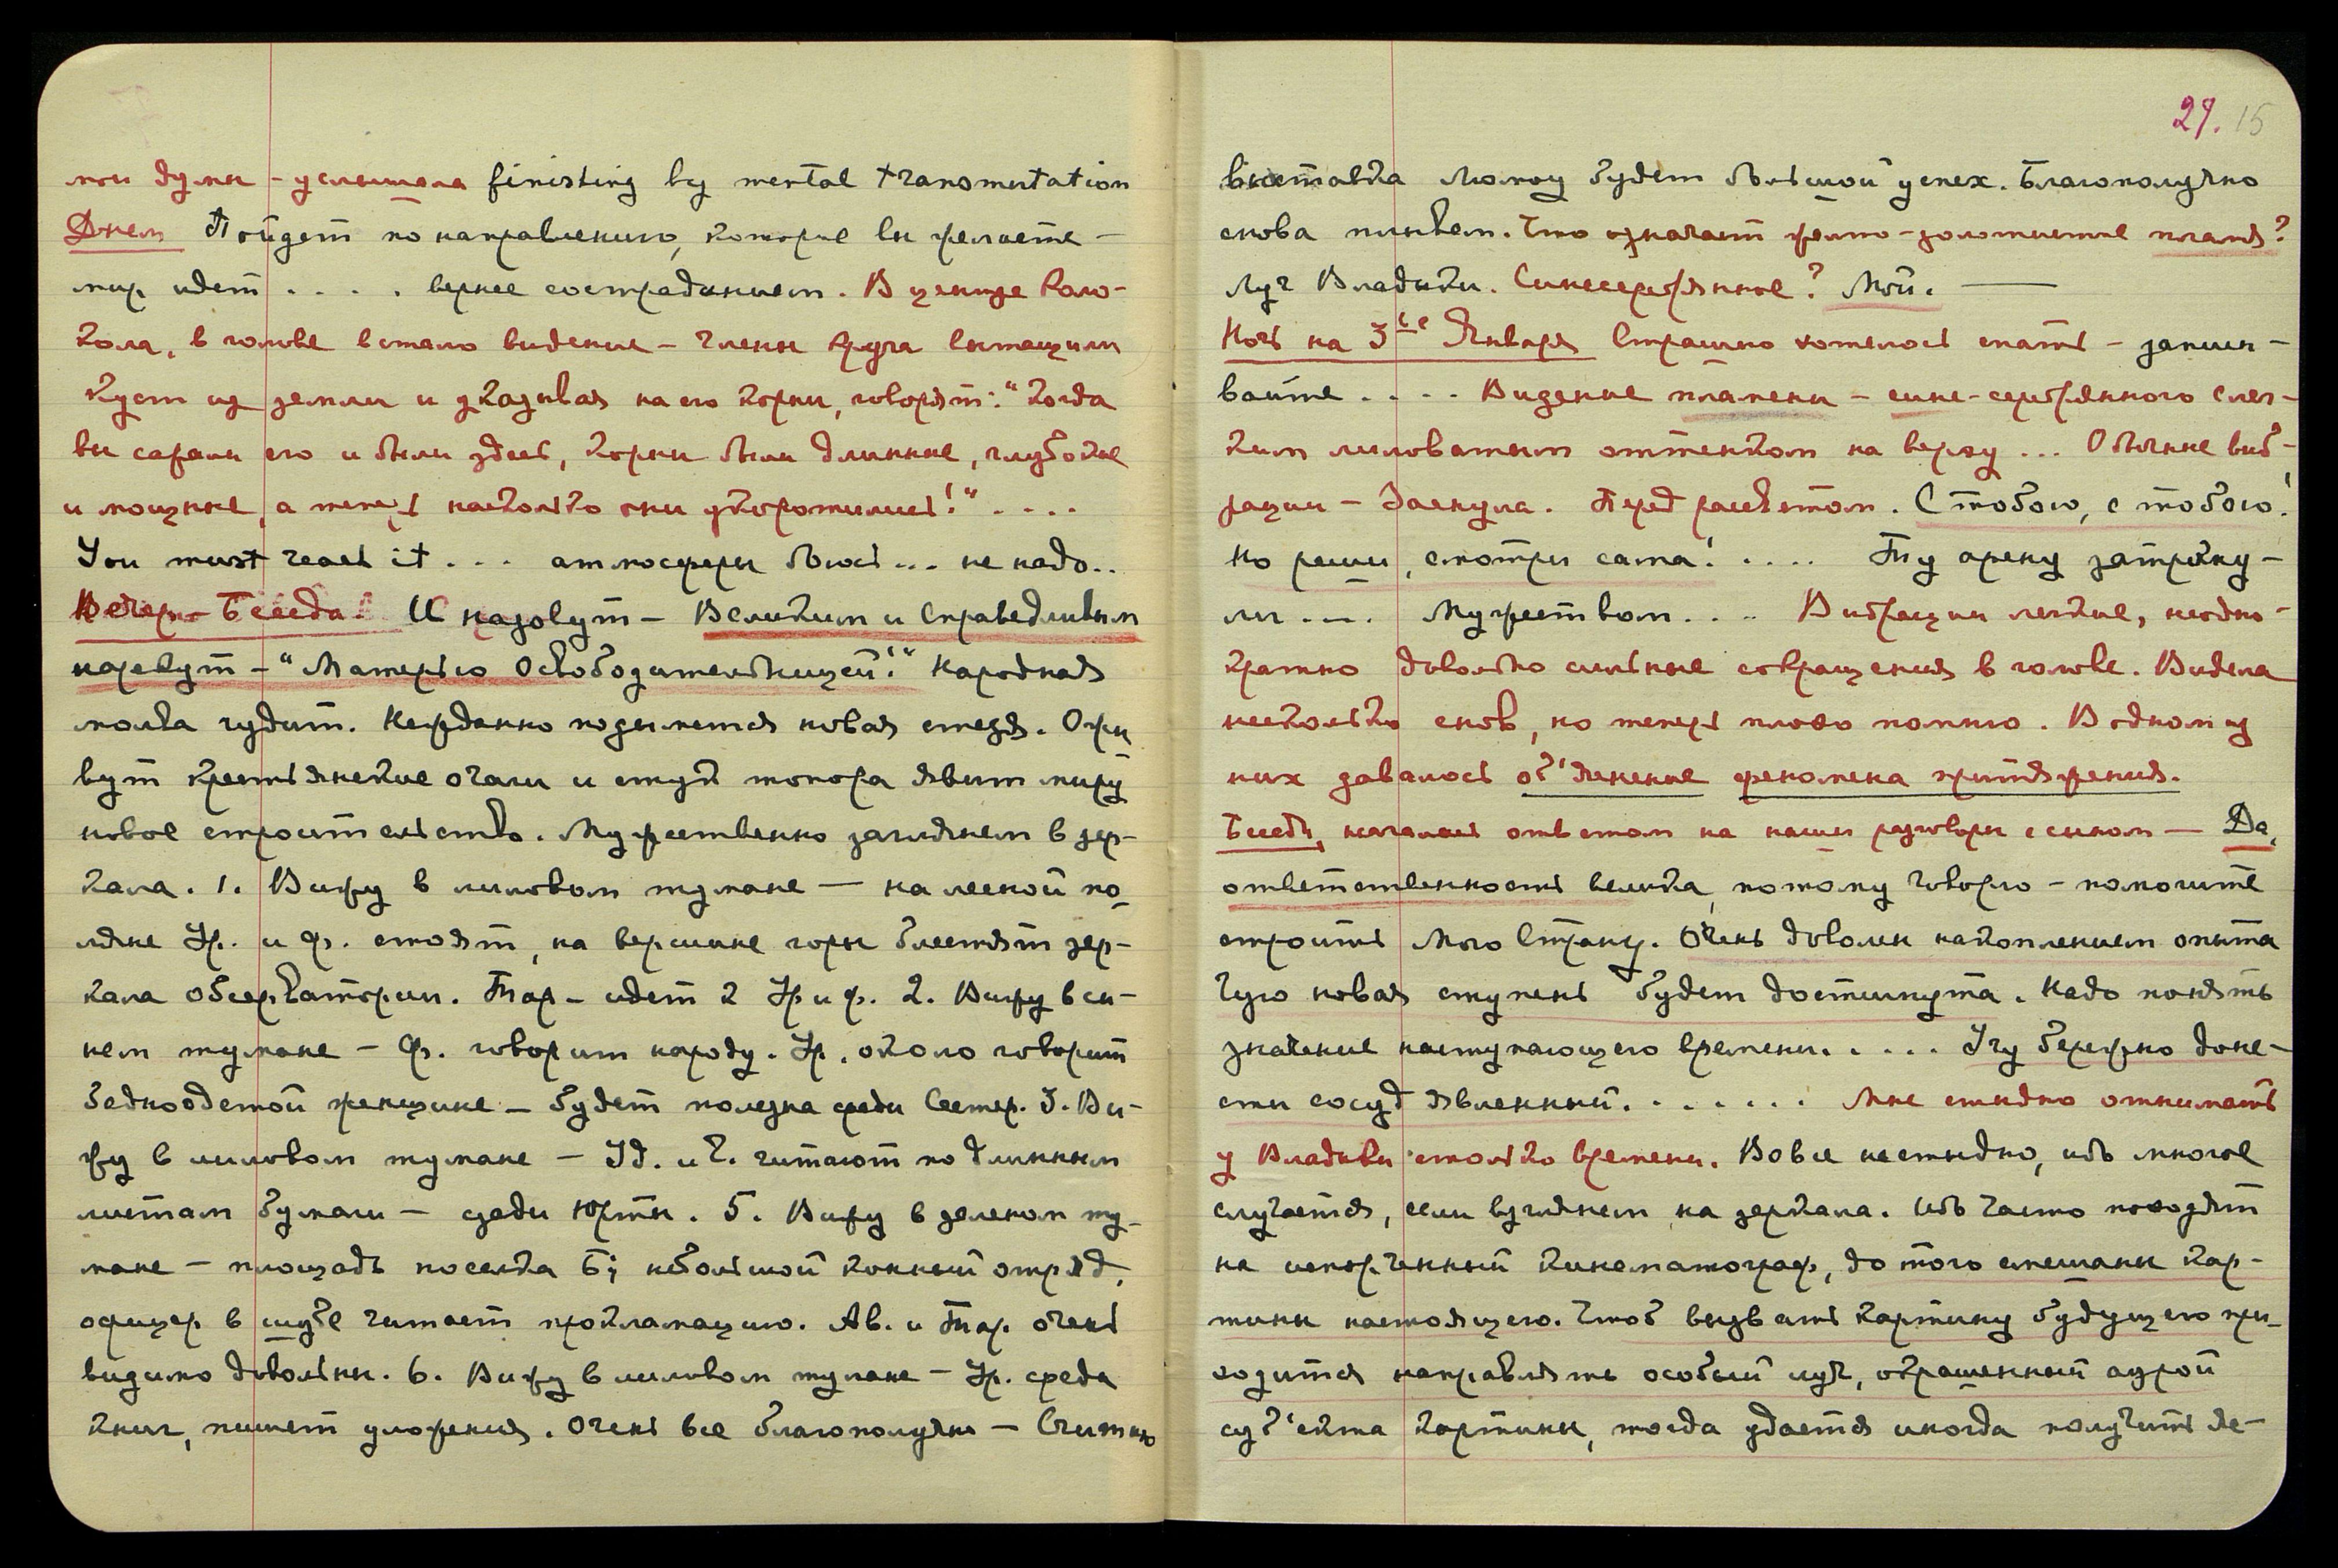 мои думы – услышала finishing by mental transmutation
Днем Пойдет по направлению, которые вы желаете –
мир идет . . . . вернее состраданием. В церкище Коло-
кола, в голове встало видение – члены Круга вытащили
куст из земли и указывая на его корни, говорят: "Когда
вы сажали его и были здесь, корни были длинные, глубокие
и мощные, а теперь насколько они укоротились!" . . . .
You must reach it . . . атмосферы боюсь ... не надо..
Вечер. Беседа. И назовут – Великим и Справедливым
нарекут – "Матерью Освободительницей!" Народная
молва чудит. Нежданно подымется новая стезя. Ожи-
вут крестьянские очаги и стук топора явит миру
новое строительство. Мужественно заглянем в зер-
кала. 1. Вижу в лиловом тумане — на лесной по-
ляне Ур. и Ф. стоят, на вершине горы блестят зер-
кала обсерватории. Тар – идет к Ур и Ф. 2. Вижу в си-
нем тумане – Ф. говорит народу. Ур. около говорит
бедноодетой женщине – будет полезна среди Сестер. 3. Ви-
жу в лиловом тумане – Уд. и Ч. читают по длинным
листам бумаги – сзади Юрты. 5. Вижу в зеленом ту-
мане – площадь поселка Б; небольшой конный отряд,
офицер в шубе читает прокламацию. Ав. и Тар. очень
видимо довольны. 6. Вижу в лиловом тумане – Ур. среди
книг, пишет уложения. Очень все благополучно – Считаю
выставка Момоу будет большой успех. Благополучно
снова плывем. Что означает желто-золотистые пламя?
Луч Владыки. Синесеребрянное? Мой. ——
Ночь на 3ье Января Страшно хотелось спать – запиш-
вайте . . . . Видение пламени – сине-серебрянного с лег-
ким лиловатым оттенком на верху ... Обычные виб-
рации – Заснула. Перед рассветом. С тобою, с тобою!
Но реши, смотри сама! . . . . Ту арену затрону-
ли . . . . Мужеством . . . . Вибрации легкие, неодно-
кратно довольно сильные сокращения в голове. Видела
несколько снов, но теперь плохо помню. В одном из
них давалось об'яснение феномена притяжения.
Беседа, началась ответом на наши разговоры с сыном — Да,
ответственность велика, потому говорю – помогите
строить Мою Страну. Очень доволен накоплением опыта
Чую новая ступень будет достигнута. Надо понять
значение наступающего времени. . . . . Учу бережно доне-
сти сосуд явленный. . . . . . . Мне стыдно отнимать
у Владыки столько времени. Вовсе не стыдно, ибо многое
случается, если взглянем на зеркала. Ибо часто походят
на испорченный кинематограф, до того смешаны кар-
тины настоящего. Чтоб вызвать картину будущего при-
ходится направлять особый луч, окрашенный аурой
суб'екта картины, тогда удается иногда получить яс-
29. 15